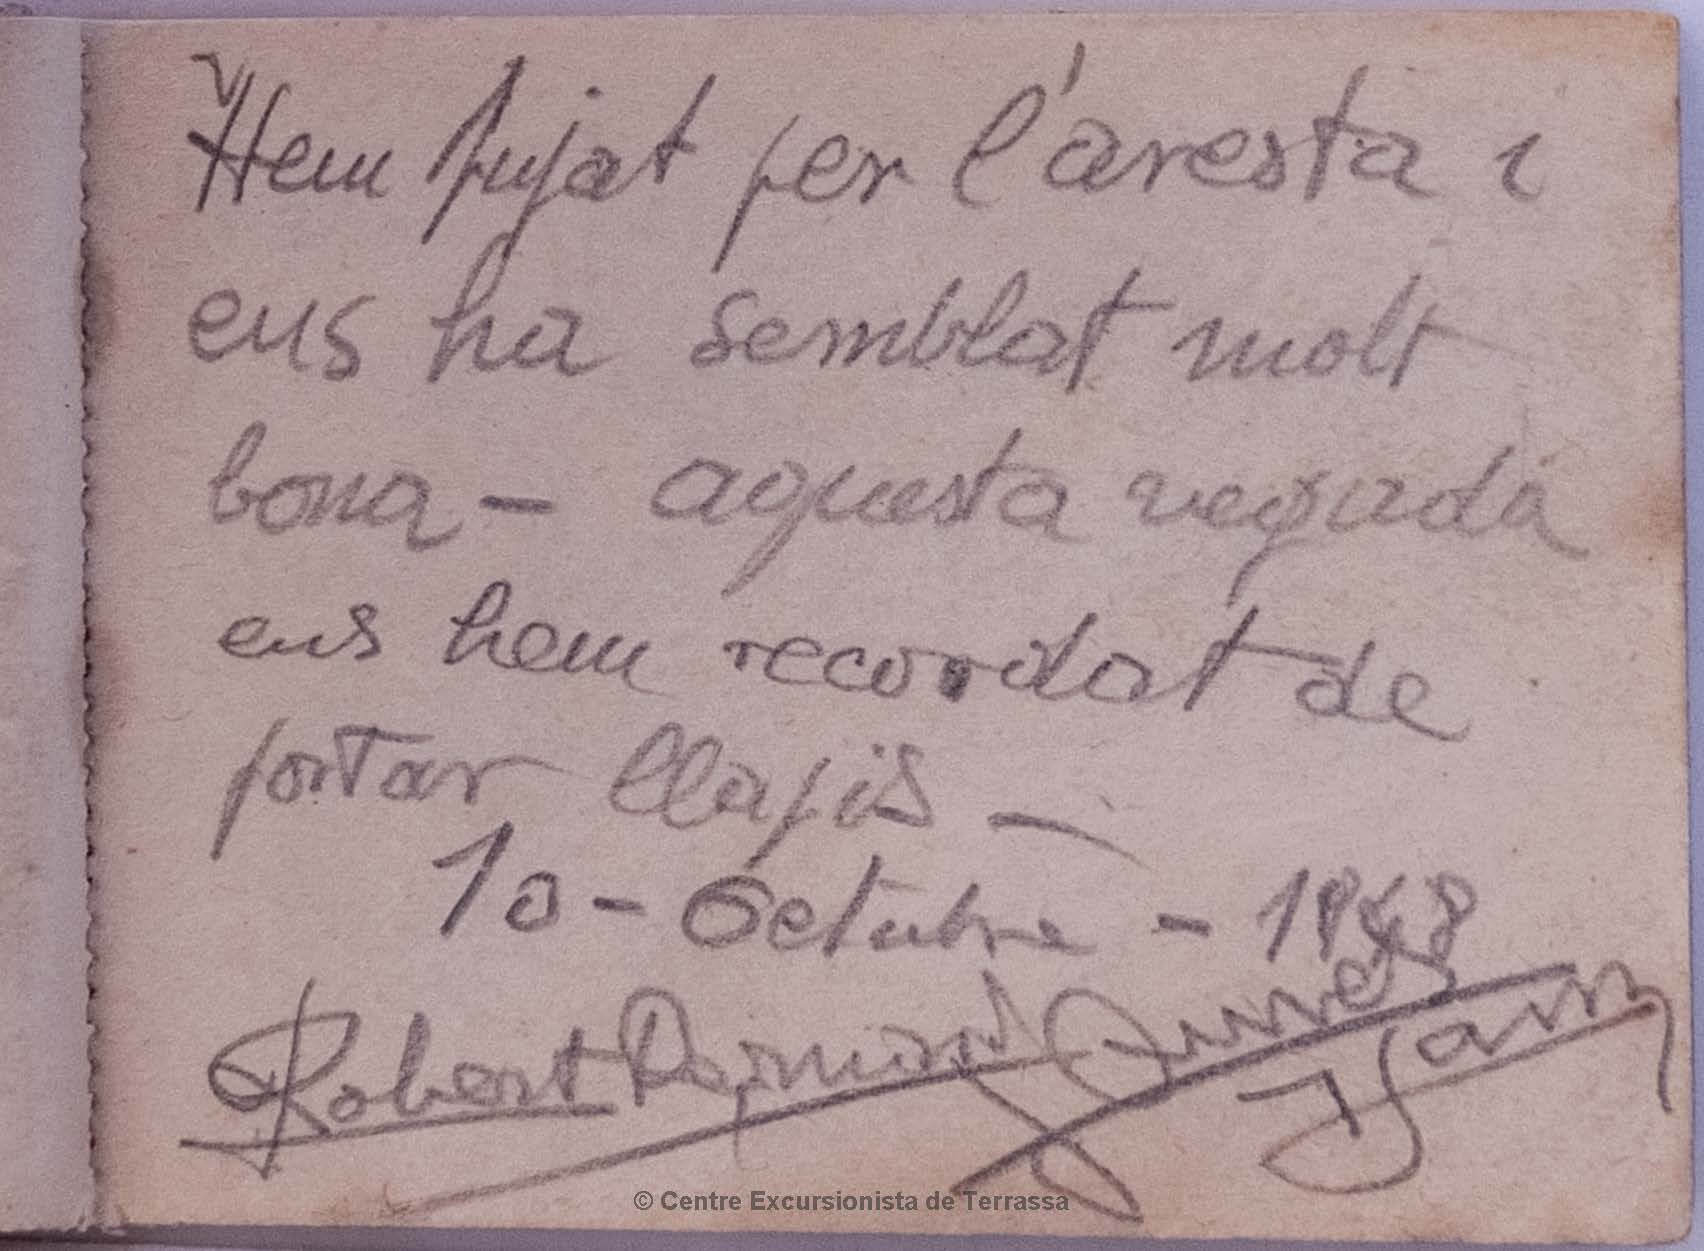 Hem pujat per l'aresta i
ens ha semblat molt
bona - aquesta vegada
ens hem recordat de
portar llapis -
10 - Octubre - 1948
Robert
© Centre Excursionista de Terrassa